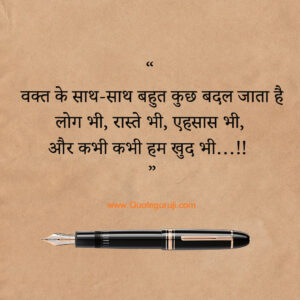 “
वक्त के साथ-साथ बहुत कुछ बदल जाता है
लोग भी, रास्ते भी, एहसास भी,
और कभी कभी हम खुद भी...!!
”
www.Quoteguruji.com